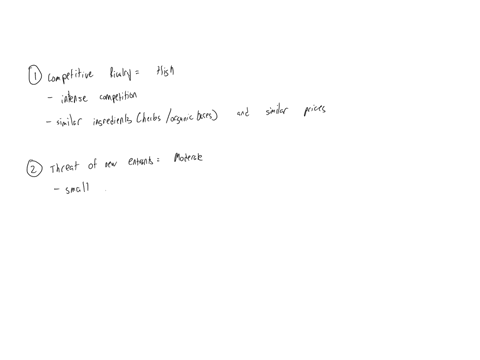 ① Competitive Rivalry = High
- intense competition
- similar ingredients (herbs/organic bases) and similar prices
② Threat of new entrants = Moderate
- small